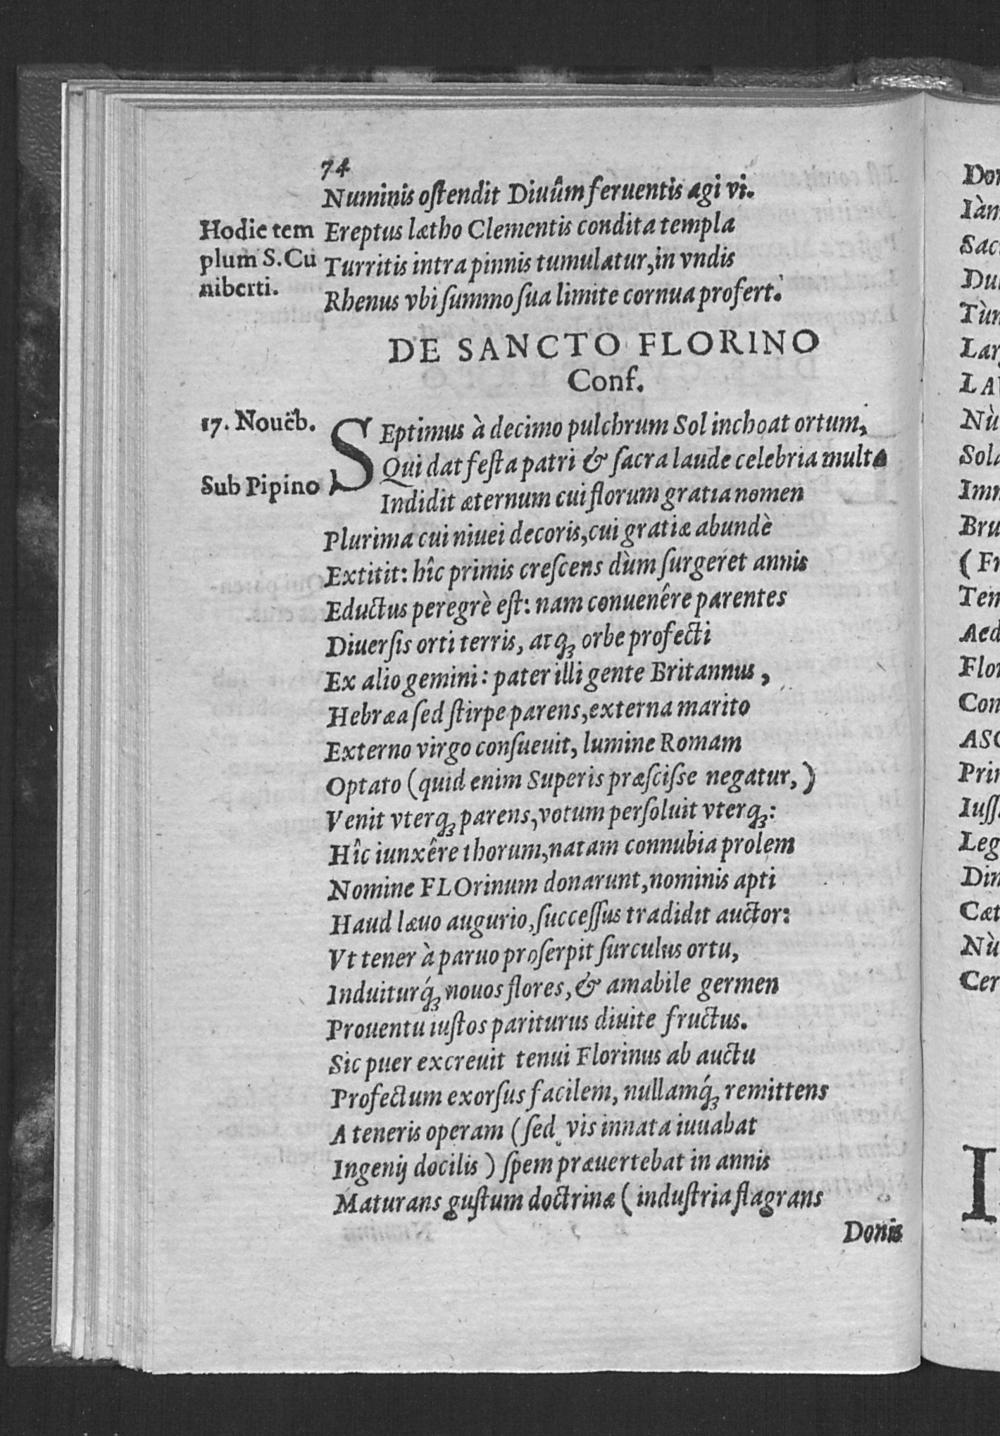 74
Numinis ostendit Diuûm feruentis agi vi.
Hodie tem
plum S. Cu
niberti.
Ereptus lætho Clementis condita templa
Turritis intra pinnis tumulatur, in vndis
Rhenus vbi summo sua limite cornua profert.
DE SANCTO FLORINO
Conf.
17. Nouēb.
SEptimus à decimo pulchrum Sol inchoat ortum,
Qui dat festa patri & sacra laude celebria multa
Sub Pipino
Indidit æternum cui florum gratia nomen
Plurima cui niuei decoris, cui gratiæ abundè
Extitit: hîc primis crescens dùm surgeret annis
Eductus peregrè est: nam conuenêre parentes
Diuersis orti terris, atq́ꝫ orbe profecti
Ex alio gemini: pater illi gente Britannus,
Hebræa sed stirpe parens, externa marito
Externo virgo consueuit, lumine Romam
Optato (quid enim Superis præscisse negatur,)
Venit vterqꝫ parens, votum persoluit vterqꝫ:
Hîc iunxêre thorum, natam connubia prolem
Nomine FLOrinum donarunt, nominis apti
Haud læuo augurio, successus tradidit auctor:
Vt tener à paruo proserpit surculus ortu,
Induiturq́ꝫ nouos flores, & amabile germen
Prouentu iustos pariturus diuite fructus.
Sic puer excreuit tenui Florinus ab auctu
Profectum exorsus facilem, nullamq́ꝫ remittens
A teneris operam (sed vis innata iuuabat
Ingenij docilis) spem præuertebat in annis
Maturans gustum doctrinæ (industria flagrans
Donis
Iàn
Sac
Dul
Tùn
Lar
LAV
Nù
Sola
Imn
Bru
(Fr
Ten
Aed
Flor
Con
ASC
Prin
Iuss
Leg
Din
Cæt
Nù
Cer
I